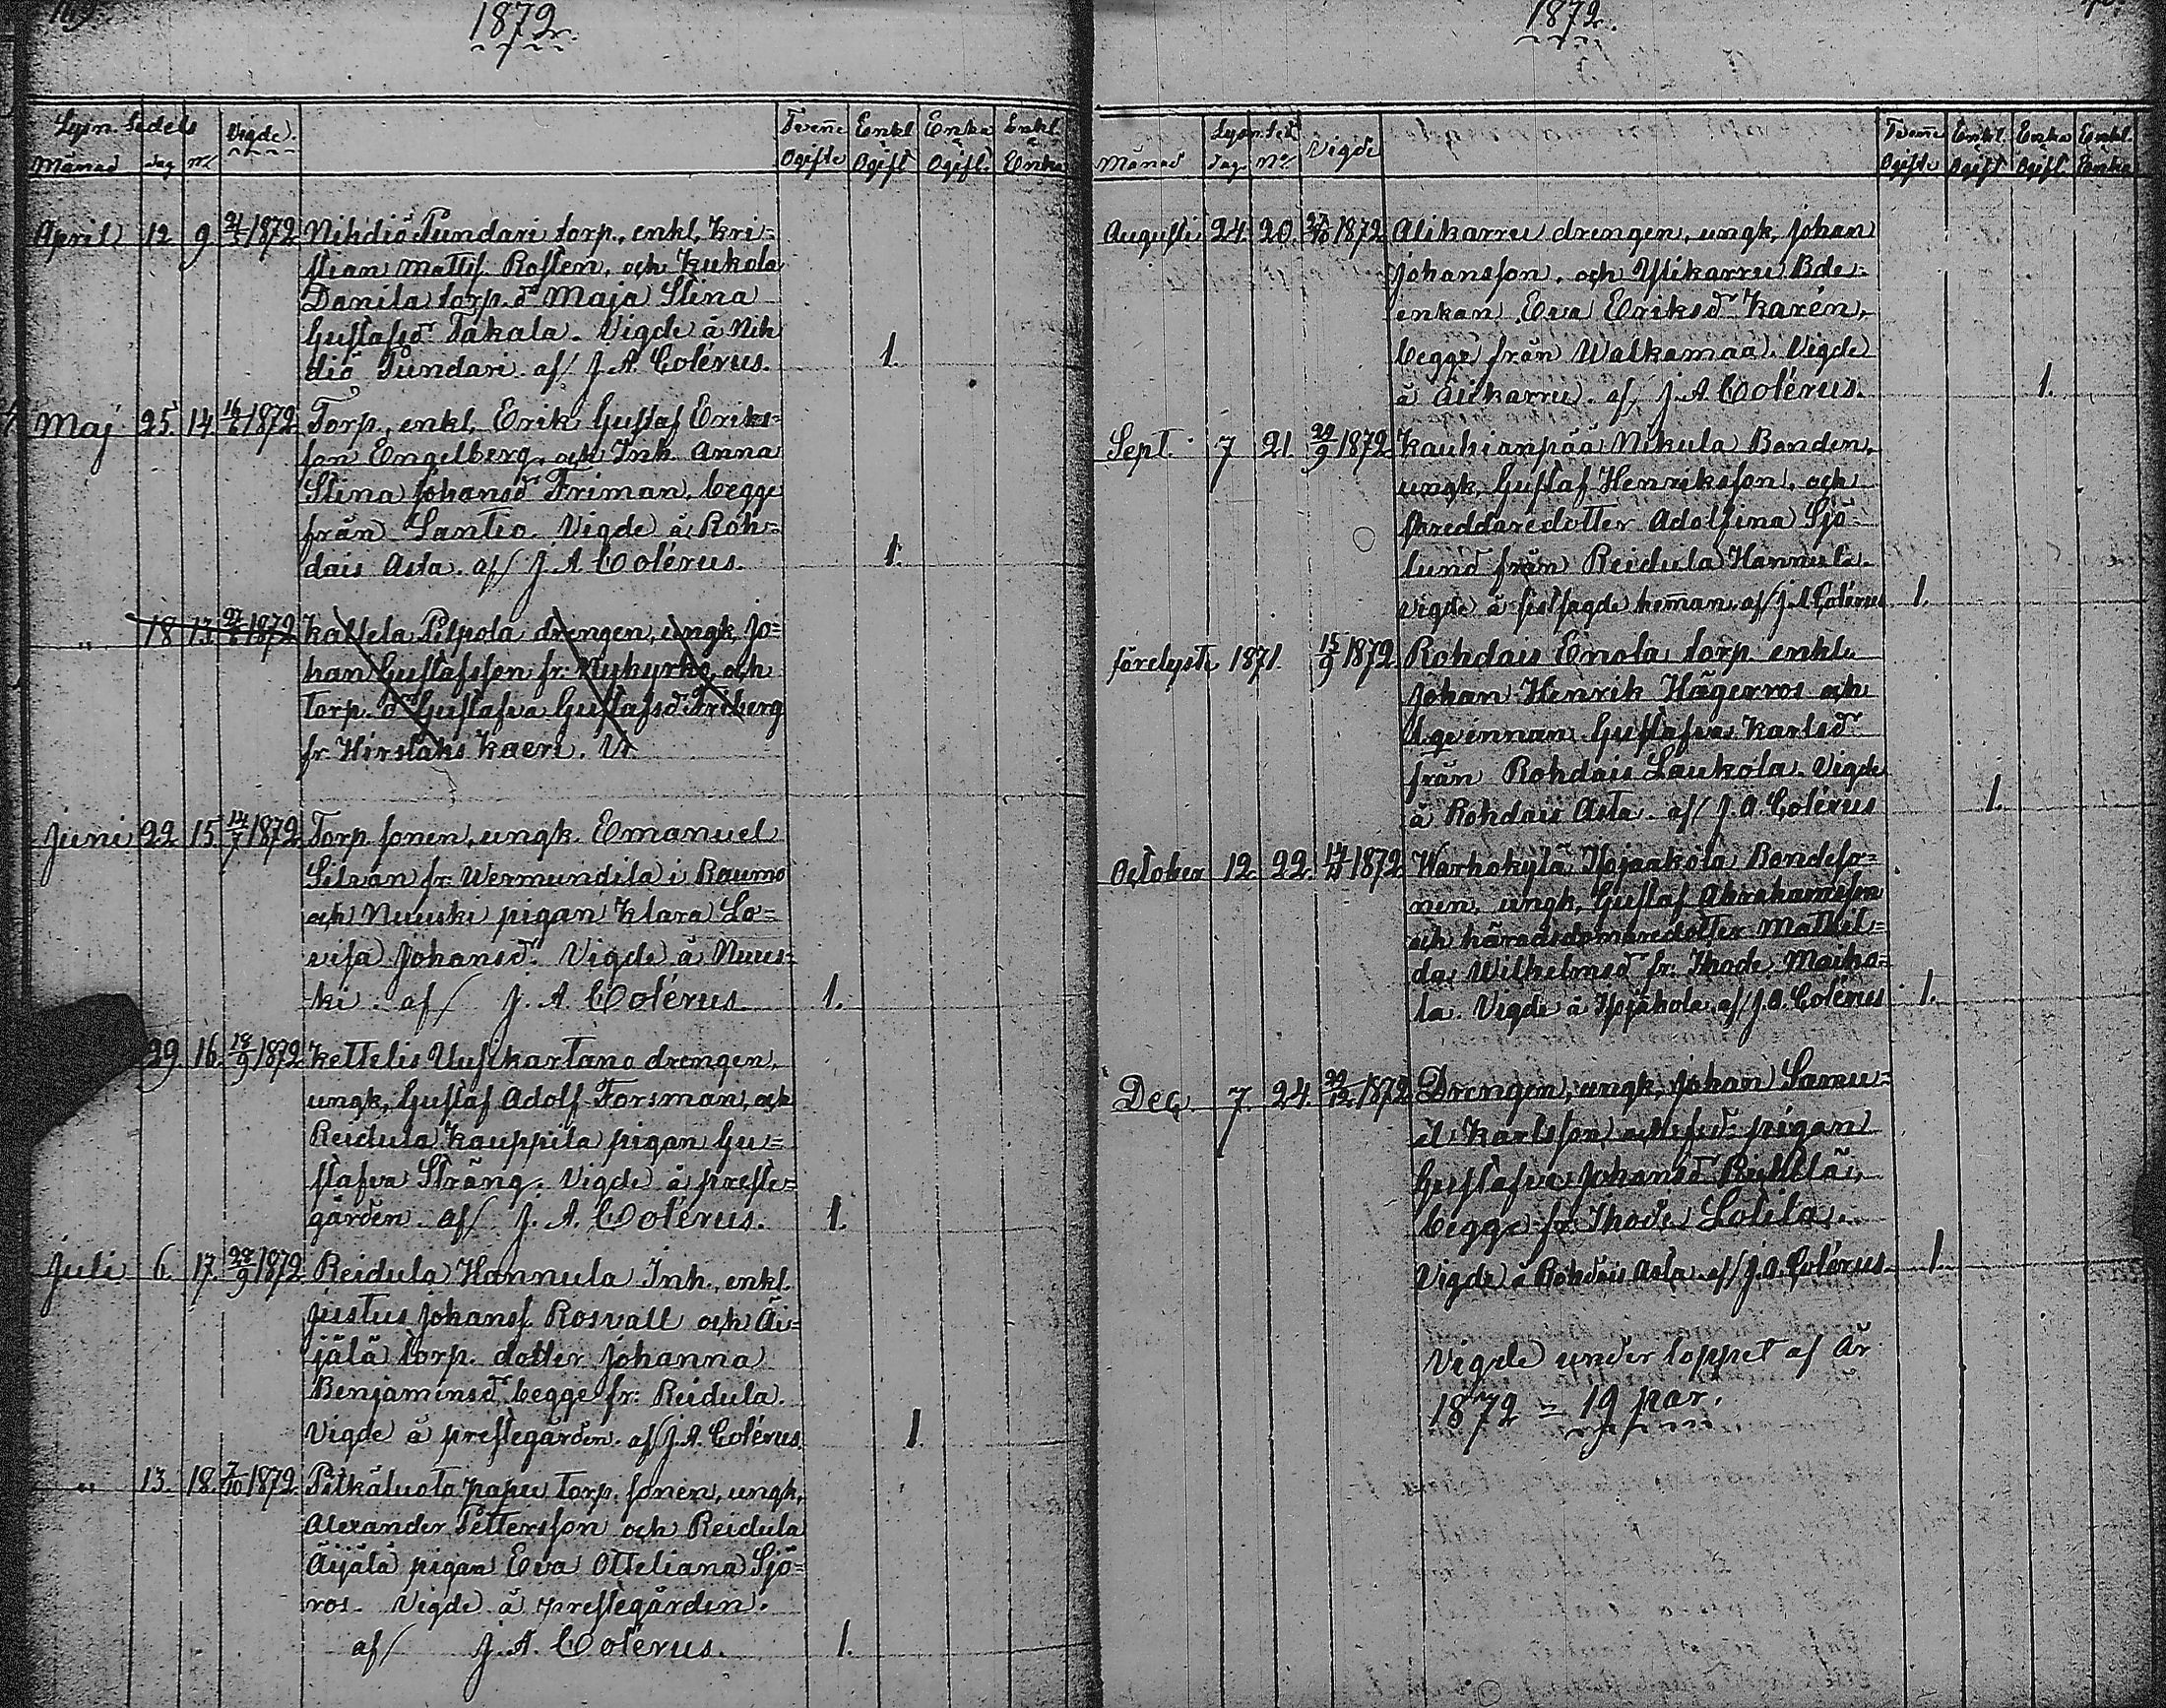 1872.
Lysn. Sedels
Vigde.
Tvenne Ogifte
Enkl. Ogift
Enka Ogift.
Enkl. Enka
Månad dag No
April 12 9 21/5 1872 Nihdiö Sundari torp., enkl. Kri=
stian Matts. Rosten, och Kukola
Danila torp. d. Maja Stina
Gustafsd. Takala. Vigde å Nih
diö Sundari. af/ J. A. Colérus. 1.
Maj 25. 14. 16/6 1872 Torp. enkl. Erik Gustaf Eriks=
son Engelberg, och Inh. Anna
Stina Johansd. Friman, begge
från Santio. Vigde å Roh=
dais Asta. af/ J. A. Colérus. 1.
" 18 13 1872 Kallela Pilpola drengen, ungk. Jo=
han Gustafsson fr: Nykyrko, och
Torp. d. Gustafva Gustafsd. Friberg
fr. Hirslaks Kaeri. V.
Juni 22 15 14/7 1872 Torp. sonen, ungk. Emanuel
Silvan fr. Wermundila i Raumo
och Nuuski pigan Klara Lo=
visa Johansd. Vigde å Nuus=
ki. af/ J. A. Colérus. 1.
29. 16. 18/9 1872 Kettelis Uusikartano drengen,
ungk. Gustaf Adolf Forsman, och
Reidula Kauppila pigan Gu=
stafva Sträng. Vigde å preste=
gården. af/ J. A. Colérus. 1.
Juli 6. 17. 28/9 1872 Reidula Hannula Inh. enkl.
Justus Johans. Rosvall och Äi=
jälä torp. dotter Johanna
Benjaminsd. begge fr: Reidula.
Vigde å prestegården. af/ J. A. Colérus. 1.
" 13. 18. 7/10 1872 Pitkäluoto papu Torp. sonen, ungk.
Alexander Pettersson och Reidula
Äijälä pigan Eva Otteliana Sjö=
ros. Vigde å prestegården.
af/ J. A. Colérus. 1.
1872.
Lysn. Sed.
Månad dag No. Vigde
Tvenne Ogifte
Enkl. Ogift
Enka Ogift.
Enkl. Enka
Augusti 24. 20. 27/10 1872 Alikarru drengen, ungk. Johan
Johansson, och Ylikarru Bde=
enkan Eva Eriksd. Karén,
begge från Walkamaa. Vigde
å Alikarru. af/ J. A. Colérus. 1.
Sept. 7 21. 29/9 1872 Kauhianpää Nikula Bonden,
ungk. Gustaf Henriksson, och
skreddaredotter Adolfina Sjö=
lund från Reidula Hannula.
Vigde å sistsagde heman. af/ J. A. Colérus 1.
förelyste 1871. 15/9 1872 Rohdais Enola torp. enkl.
Johan Henrik Hägerros och
qvinnan Gustafva Karlsd.
från Rohdais Laukola. Vigde
å Rohdais Asta. af/ J. A. Colérus 1.
October 12. 22. 1872 Warhokylä Bondeso=
nen, ungk. Gustaf Abrahamsson
och häradsdomaredotter Mathil=
da Wilhelmsd. fr. Ihode Maiha=
la. Vigde å af/ J. A. Colérus 1.
Dec. 7. 24. 29/12 1872 Drengen, ungk. Johan Samu=
el Karlsson, och pigan
Gustafva Johansd.
begge fr. Ihode Lolila.
Vigde å Rohdais Asta. af/ J. A. Colérus 1.
Vigde under loppet af År
1872 = 19 par.